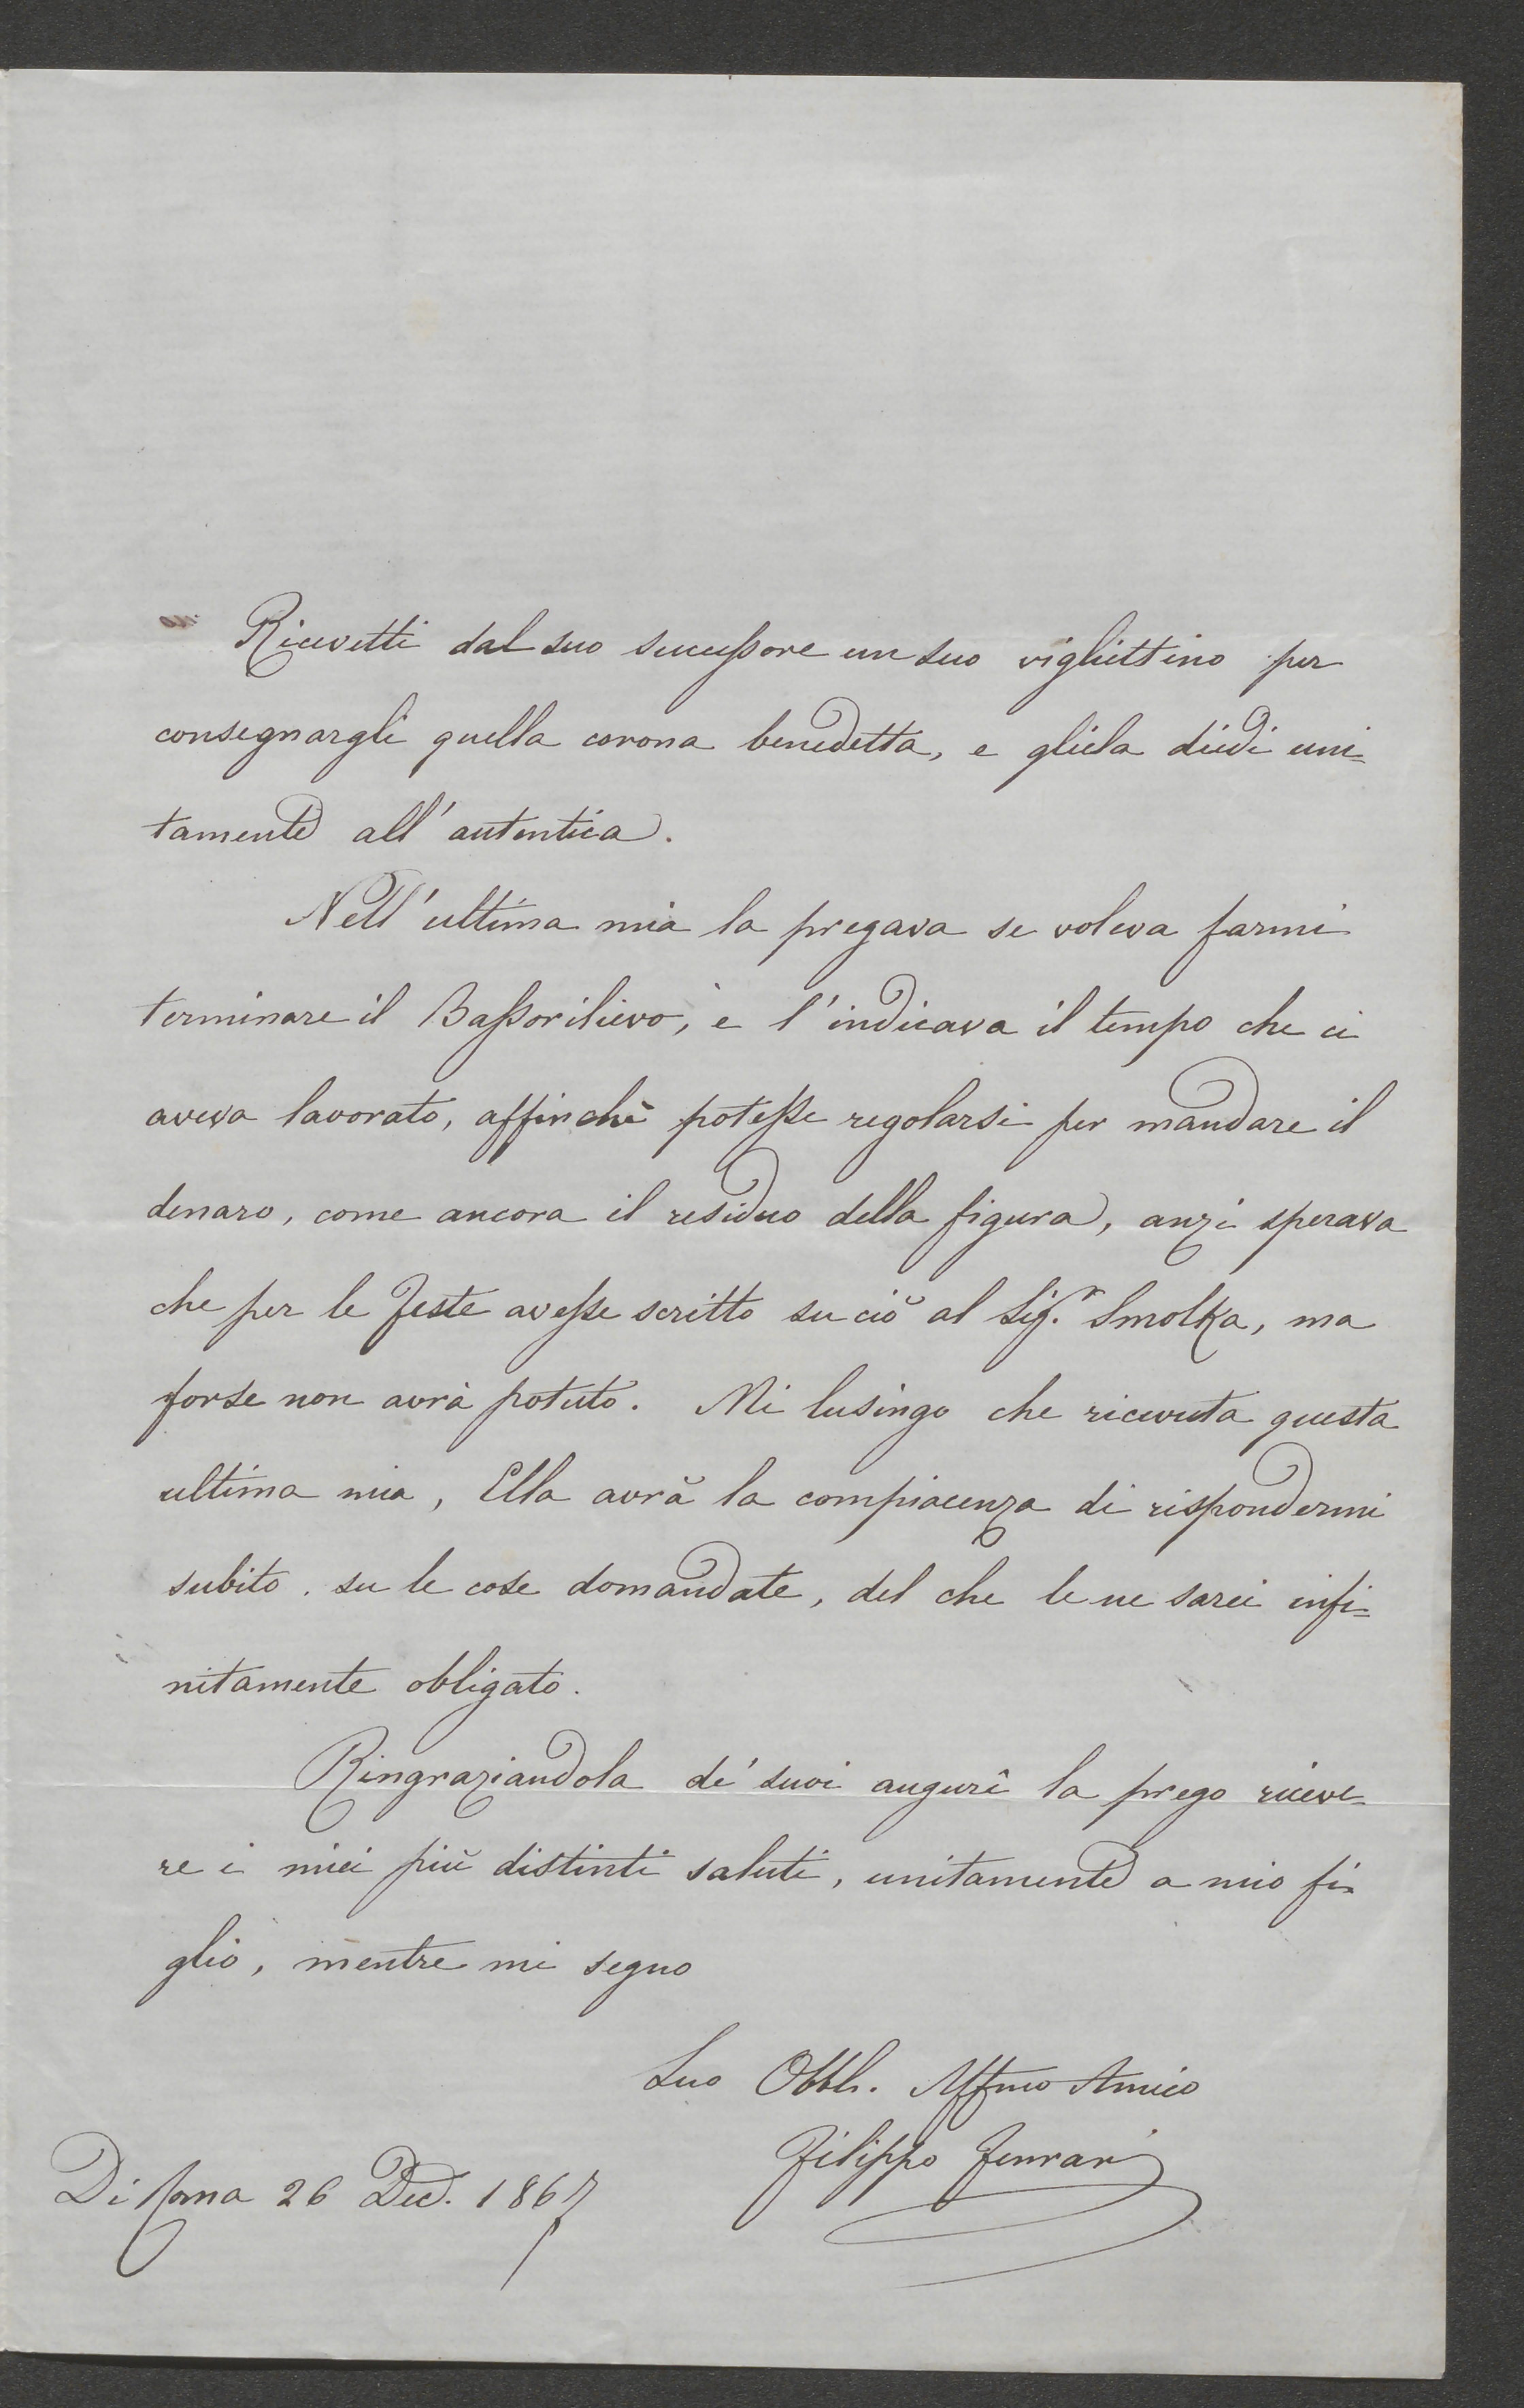 Ricevetti dal suo successore un suo vigliettino per
consegnargli quella corona benedetta, e gliela diedi uni=
tamente all'autentica.
Nell'ultima mia la pregava se voleva farmi
terminare il Bassorilievo, e l'indicava il tempo che ci
aveva lavorato, affinchè potesse regolarsi per mandare il
denaro, come ancora il residuo della figura, anzi sperava
che per le feste avesse scritto su ciò al Sig.r Smolka, ma
forse non avrà potuto. Mi lusingo che ricevuta questa
ultima mia, Ella avrà la compiacenza di rispondermi
subito su le cose domandate, del che le ne sarei infi=
nitamente obligato.
Ringraziandola de' suoi augurî la prego riceve=
re i miei più distinti saluti, unitamente a mio fi=
glio, mentre mi segno
Suo Obbl. Affmo Amico
Filippo Ferrari
Di Roma 26 Dec. 1867